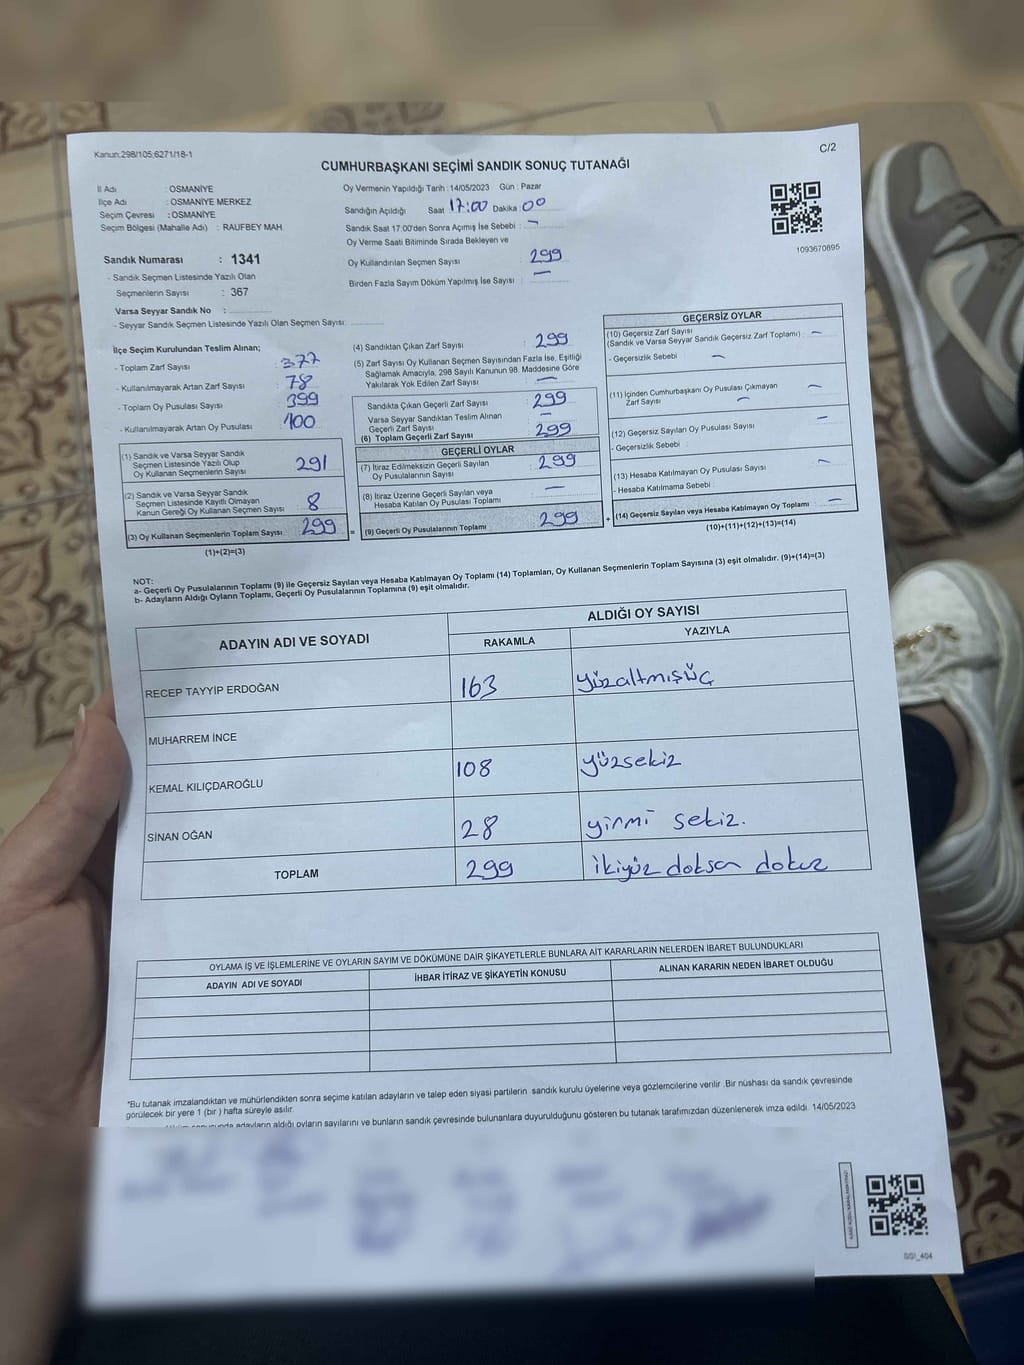 Kanun:298/105;6271/18-1
C/2
CUMHURBAŞKANI SEÇİMİ SANDIK SONUÇ TUTANAĞI
İl Adı : OSMANİYE
İlçe Adı : OSMANİYE MERKEZ
Seçim Çevresi : OSMANİYE
Seçim Bölgesi (Mahalle Adı) : RAUFBEY MAH.
Sandık Numarası : 1341
- Sandık Seçmen Listesinde Yazılı Olan
Seçmenlerin Sayısı : 367
Varsa Seyyar Sandık No :
- Seyyar Sandık Seçmen Listesinde Yazılı Olan Seçmen Sayısı:
Oy Vermenin Yapıldığı Tarih : 14/05/2023 Gün : Pazar
Sandığın Açıldığı Saat 17:00 Dakika 00
Sandık Saat 17:00'den Sonra Açımış İse Sebebi : -
Oy Verme Saati Bitiminde Sırada Bekleyen ve
Oy Kullandırılan Seçmen Sayısı : 299
Birden Fazla Sayım Döküm Yapılmış İse Sayısı : —
1093670895
İlçe Seçim Kurulundan Teslim Alınan;
- Toplam Zarf Sayısı : 377
- Kullanılmayarak Artan Zarf Sayısı : 78
- Toplam Oy Pusulası Sayısı : 399
- Kullanılmayarak Artan Oy Pusulası : 100
(1) Sandık ve Varsa Seyyar Sandık
Seçmen Listesinde Yazılı Olup
Oy Kullanan Seçmenlerin Sayısı 291
(2) Sandık ve Varsa Seyyar Sandık
Seçmen Listesinde Kayıtlı Olmayan
Kanun Gereği Oy Kullanan Seçmen Sayısı 8
(3) Oy Kullanan Seçmenlerin Toplam Sayısı 299
(1)+(2)=(3)
(4) Sandıktan Çıkan Zarf Sayısı : 299
(5) Zarf Sayısı Oy Kullanan Seçmen Sayısından Fazla İse, Eşitliği
Sağlamak Amacıyla, 298 Sayılı Kanunun 98. Maddesine Göre
Yakılarak Yok Edilen Zarf Sayısı : —
Sandıkta Çıkan Geçerli Zarf Sayısı : 299
Varsa Seyyar Sandıktan Teslim Alınan
Geçerli Zarf Sayısı : —
(6) Toplam Geçerli Zarf Sayısı : 299
GEÇERLİ OYLAR
(7) İtiraz Edilmeksizin Geçerli Sayılan
Oy Pusulalarının Sayısı : 299
(8) İtiraz Üzerine Geçerli Sayılan veya
Hesaba Katılan Oy Pusulası Toplamı : —
= (9) Geçerli Oy Pusulalarının Toplamı : 299 +
GEÇERSİZ OYLAR
(10) Geçersiz Zarf Sayısı
(Sandık ve Varsa Seyyar Sandık Geçersiz Zarf Toplamı) : —
- Geçersizlik Sebebi : —
(11) İçinden Cumhurbaşkanı Oy Pusulası Çıkmayan
Zarf Sayısı : —
(12) Geçersiz Sayılan Oy Pusulası Sayısı : —
- Geçersizlik Sebebi :
(13) Hesaba Katılmayan Oy Pusulası Sayısı : —
- Hesaba Katılmama Sebebi :
(14) Geçersiz Sayılan veya Hesaba Katılmayan Oy Toplamı : —
(10)+(11)+(12)+(13)=(14)
NOT:
a- Geçerli Oy Pusulalarının Toplamı (9) ile Geçersiz Sayılan veya Hesaba Katılmayan Oy Toplamı (14) Toplamları, Oy Kullanan Seçmenlerin Toplam Sayısına (3) eşit olmalıdır. (9)+(14)=(3)
b- Adayların Aldığı Oyların Toplamı, Geçerli Oy Pusulalarının Toplamına (9) eşit olmalıdır.
ADAYIN ADI VE SOYADI ALDIĞI OY SAYISI
RAKAMLA YAZIYLA
RECEP TAYYİP ERDOĞAN 163 yüzaltmışüç
MUHARREM İNCE
KEMAL KILIÇDAROĞLU 108 yüzsekiz
SİNAN OĞAN 28 yirmi sekiz.
TOPLAM 299 ikiyüz doksan dokuz
OYLAMA İŞ VE İŞLEMLERİNE VE OYLARIN SAYIM VE DÖKÜMÜNE DAİR ŞİKAYETLERLE BUNLARA AİT KARARLARIN NELERDEN İBARET BULUNDUKLARI
ADAYIN ADI VE SOYADI İHBAR İTİRAZ VE ŞİKAYETİN KONUSU ALINAN KARARIN NEDEN İBARET OLDUĞU
*Bu tutanak imzalandıktan ve mühürlendikten sonra seçime katılan adayların ve talep eden siyasi partilerin sandık kurulu üyelerine veya gözlemcilerine verilir .Bir nüshası da sandık çevresinde
görülecek bir yere 1 (bir ) hafta süreyle asılır.
adayların aldığı oyların sayılarını ve bunların sandık çevresinde bulunanlara duyurulduğunu gösteren bu tutanak tarafımızdan düzenlenerek imza edildi. 14/05/2023
SGI_404